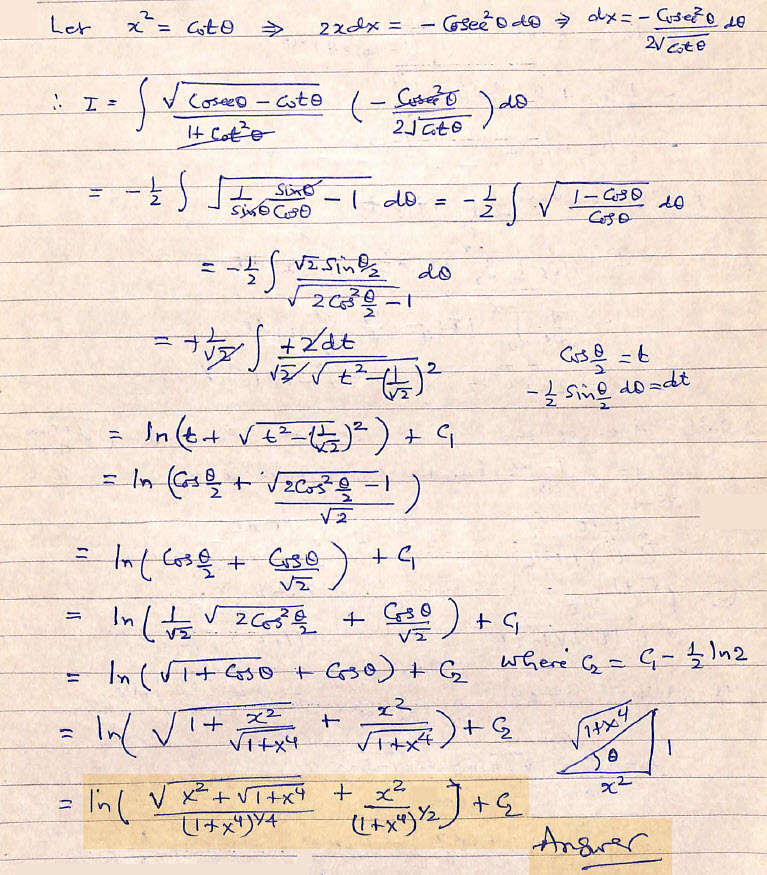 Let x² = cotθ ⇒ 2xdx = - Cosec²θ dθ ⇒ dx = - Cosec²θ/(2√cotθ) dθ
∴ I = ∫ √(Cosecθ - cotθ)/(1+Cot²θ) (- Cosec²θ/(2√Cotθ)) dθ
= -1/2 ∫ √(1/Sinθ Sinθ/Cosθ - 1) dθ = -1/2 ∫ √((1-Cosθ)/Cosθ) dθ
= -1/2 ∫ √2 Sin θ/2 / √(2Cos² θ/2 - 1) dθ
= +1/√2 ∫ +2dt/(√2 √(t² - (1/√2)²)) Cos θ/2 = t
-1/2 Sin θ/2 dθ = dt
= ln(t + √(t² - (1/√2)²)) + C₁
= ln(Cos θ/2 + √(2Cos² θ/2 - 1)/√2)
= ln(Cos θ/2 + Cosθ/√2) + C₁
= ln(1/√2 √(2Cos² θ/2) + Cosθ/√2) + C₁
= ln(√(1+Cosθ) + Cosθ) + C₂ where C₂ = C₁ - 1/2 ln2
= ln(√(1 + x²/√(1+x⁴)) + x²/√(1+x⁴)) + C₂ √(1+x⁴) θ 1 x²
= ln(√(x² + √(1+x⁴))/(1+x⁴)^1/4 + x²/(1+x⁴)^1/2] + C₂
Answer